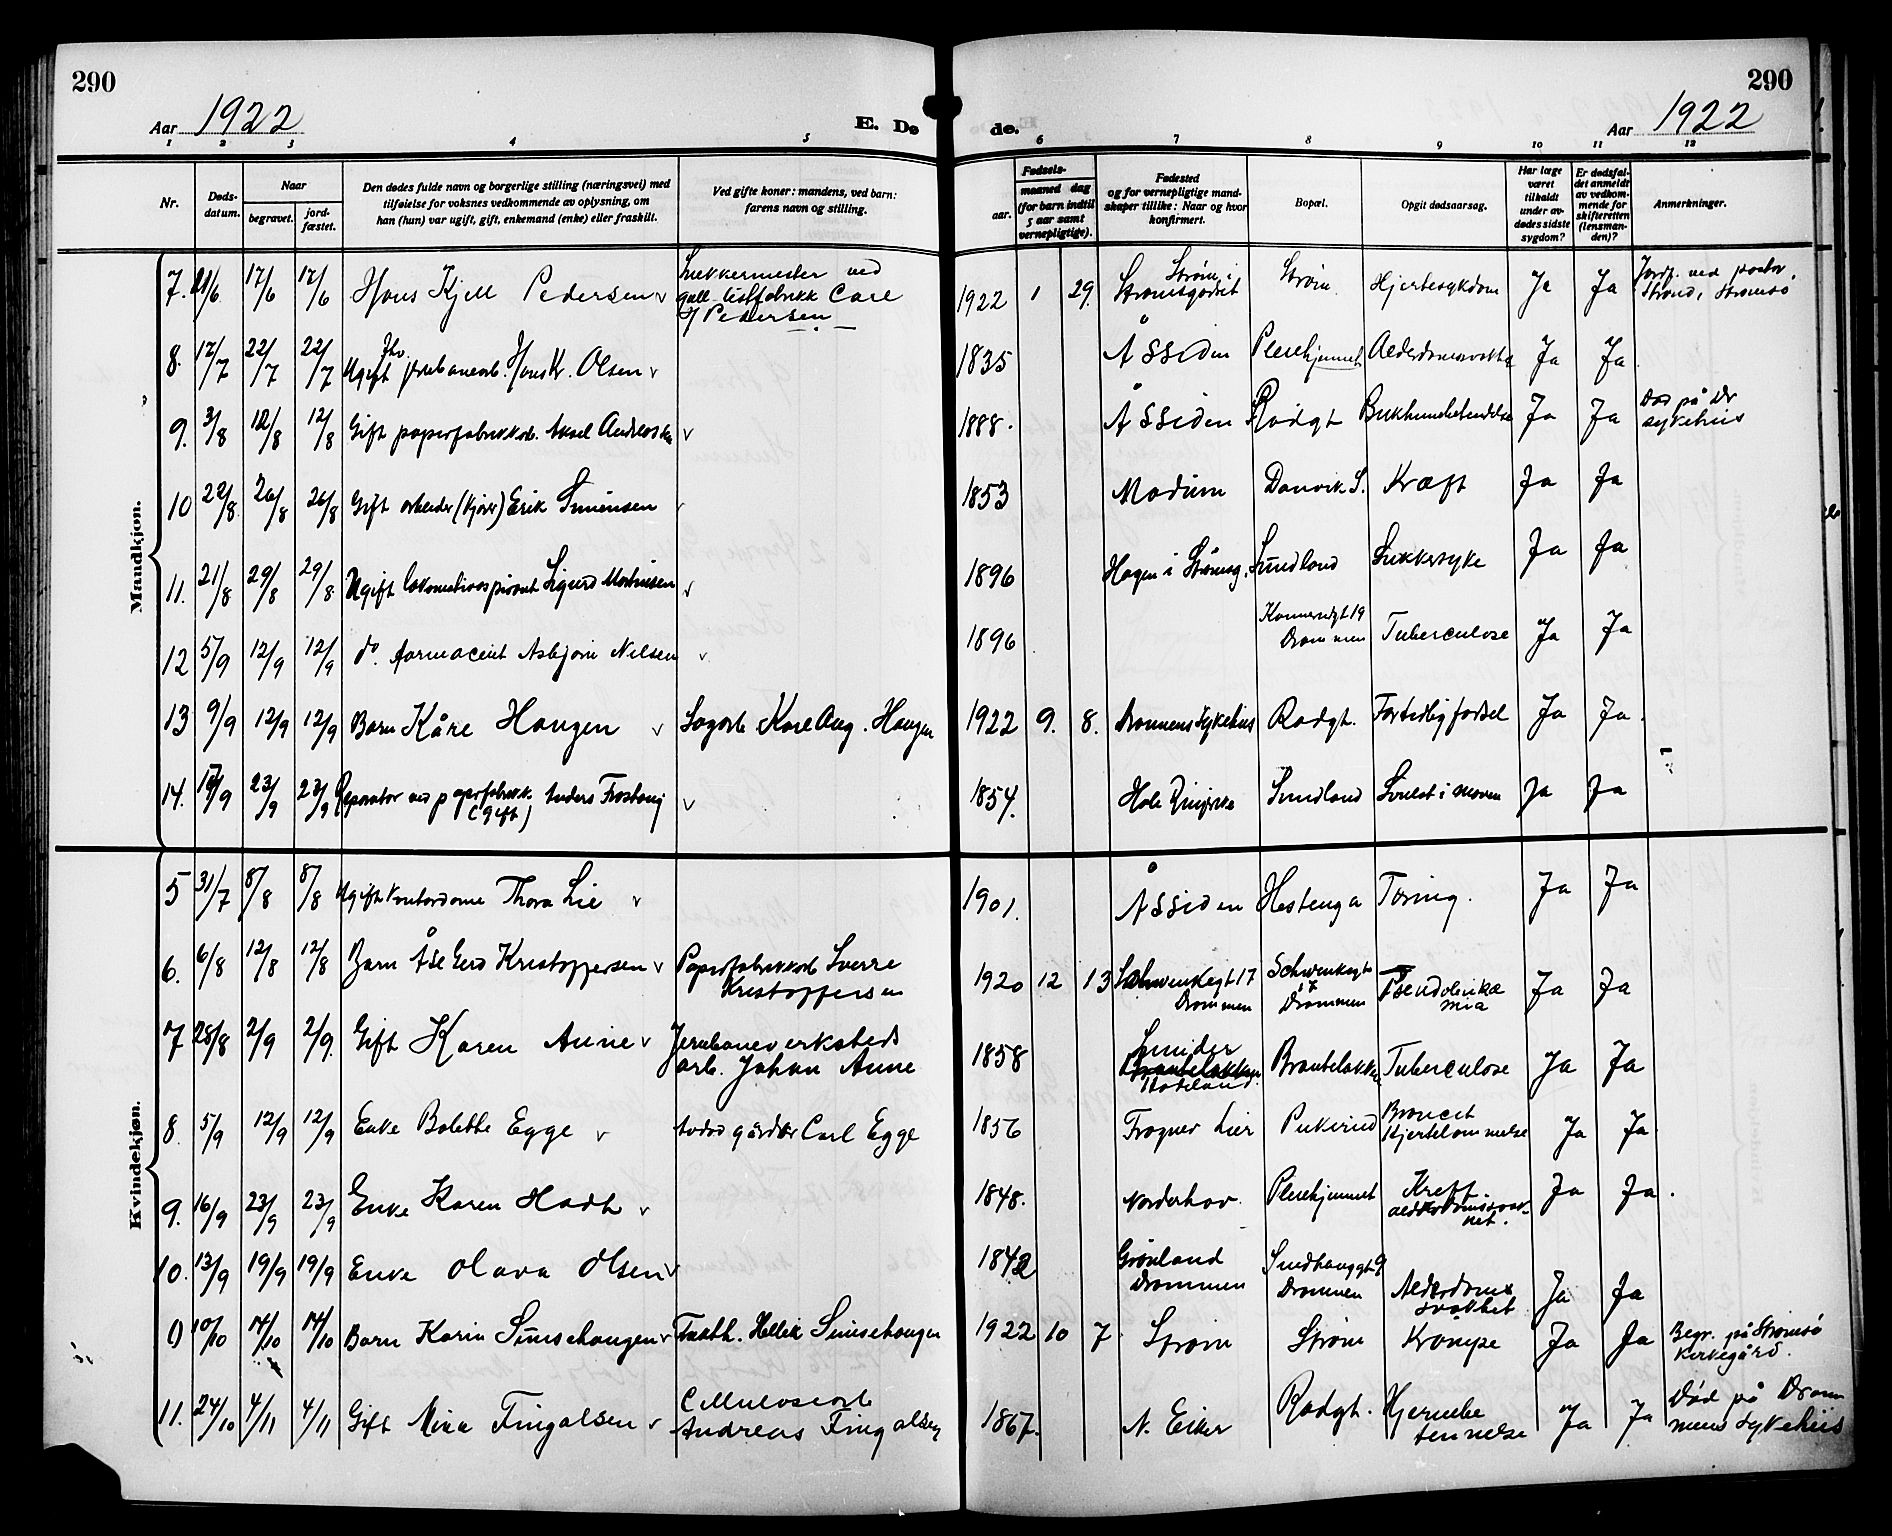 290
290
Aar 1922
E. Døde.
Aar 1922
1 2 3 4 5 6 7 8 9 10 11 12
Nr.
Døds-datum.
Naar
begravet.
jord-fæstet.
Den dødes fulde navn og borgerlige stilling (næringsvei) med
tilføielse for voksnes vedkommende av oplysning, om
han (hun) var ugift, gift, enkemand (enke) eller fraskilt.
Ved gifte koner: mandens, ved barn:
farens navn og stilling.
Fødsels-
aar.
maaned dag
(for barn indtil
5 aar samt
vernepligtige).
Fødested
og for vernepligtige mand-
skaper tillike: Naar og hvor
konfirmert.
Bopæl.
Opgit dødsaarsag.
Har læge
været
tilkaldt
under av-
dødes sidste
sygdom?
Er dødsfal-
det anmeldt
av vedkom-
mende for
skifteretten
(lensman-
den)?
Anmerkninger.
Mandkjøn.
7. 11/6 17/6 17/6 Hans Kjell Pedersen v Carl Pedersen 1922 1 29. Strøm i Strømsgodset Strøm Hjertesykdom Ja Ja Jordf. ved pastor Strand, Strømsø
8. 17/7 22/7 22/7 Ugift jernbanearb. Hans Kr. Olsen v 1835 Åssiden Pleiehjemmet Alderdomssvakhet Ja Ja
9. 3/8 12/8 12/8 Gift papirfabrikkarb. Aksel v 1888. Åssiden Rødgt Bukhindebetendelse Ja Ja Død på Dr sykehus
10 22/8 26/8 26/8 Gift arbeider (kjører) Erik Simensen v 1853 Modum Danvik S. Kræft Ja Ja
11. 21/8 29/8 29/8 Ugift lokomotivaspirant Sigurd Mathisen v 1896 Hagen i Strømsg. Sundland Sukkersyke Ja Ja
12 5/9 12/9 12/9 do. farmaceut Asbjørn Nilsen v 1896 Konnerudgt 19 Drammen Tuberculose Ja Ja
13 9/9 12/9 12/9 Barn Kåre Haugen v Sagarb Karl Aug. Haugen 1922 9. 8. Drammens Sykehus Rødgt. For tidlig fødsel Ja Ja.
14. 17/9 23/9 23/9 Reparatør ved papirfabrikk (gift) Anders v 1854. Hole Ringerike Sundland Svulst i maven Ja Ja
Kvindekjøn.
5 31/7 8/8 8/8 Ugift kontordame Thora Lie v 1901. Åssiden Hestenga Tæring. Ja Ja
6. 6/8 12/8 12/8 Barn Åse Gerd Kristoffersen v Papirfabrikkarb Sverre Kristoffersen 1920 12 13 Schwenkegt 17 Drammen Schwenkegt 17 Drammen Pseudoleukæmia Ja Ja
7 28/8 2/9 2/9. Gift Karen Aune v Jernbaneverksteds arb. Johan Aune 1858 Branteløkken Tuberculose Ja Ja
8. 5/9 12/9 12/9 Enke Bolette Egge v Carl Egge 1856 Frogner Lier Pukerud Broncit Hjertelammelse Ja Ja.
9. 16/9 23/9 23/9 Enke Karen v 1848. Norderhov. Pleiehjemmet Kreft. alderdomssvakhet. Ja Ja.
10. 13/9 19/9 19/9 Enke Olava Olsen v 1842 Grønland Drammen Sundhauggt 9 Drammen Alderdoms svakhet Ja Ja
9 10/10 14/10 14/10 Barn Karin Simsehaugen v Hellik Simsehaugen 1922 10 7. Strøm Strøm Krampe Ja Ja Begr. på Strømsø kirkegård.
11. 24/10 4/11 4/11 Gift Mina Fingalsen v Cellulosearb Andreas Fingalsen 1867. N. Eiker Rødgt. Hjernebetennelse Ja Ja Død på Drammens sykehus